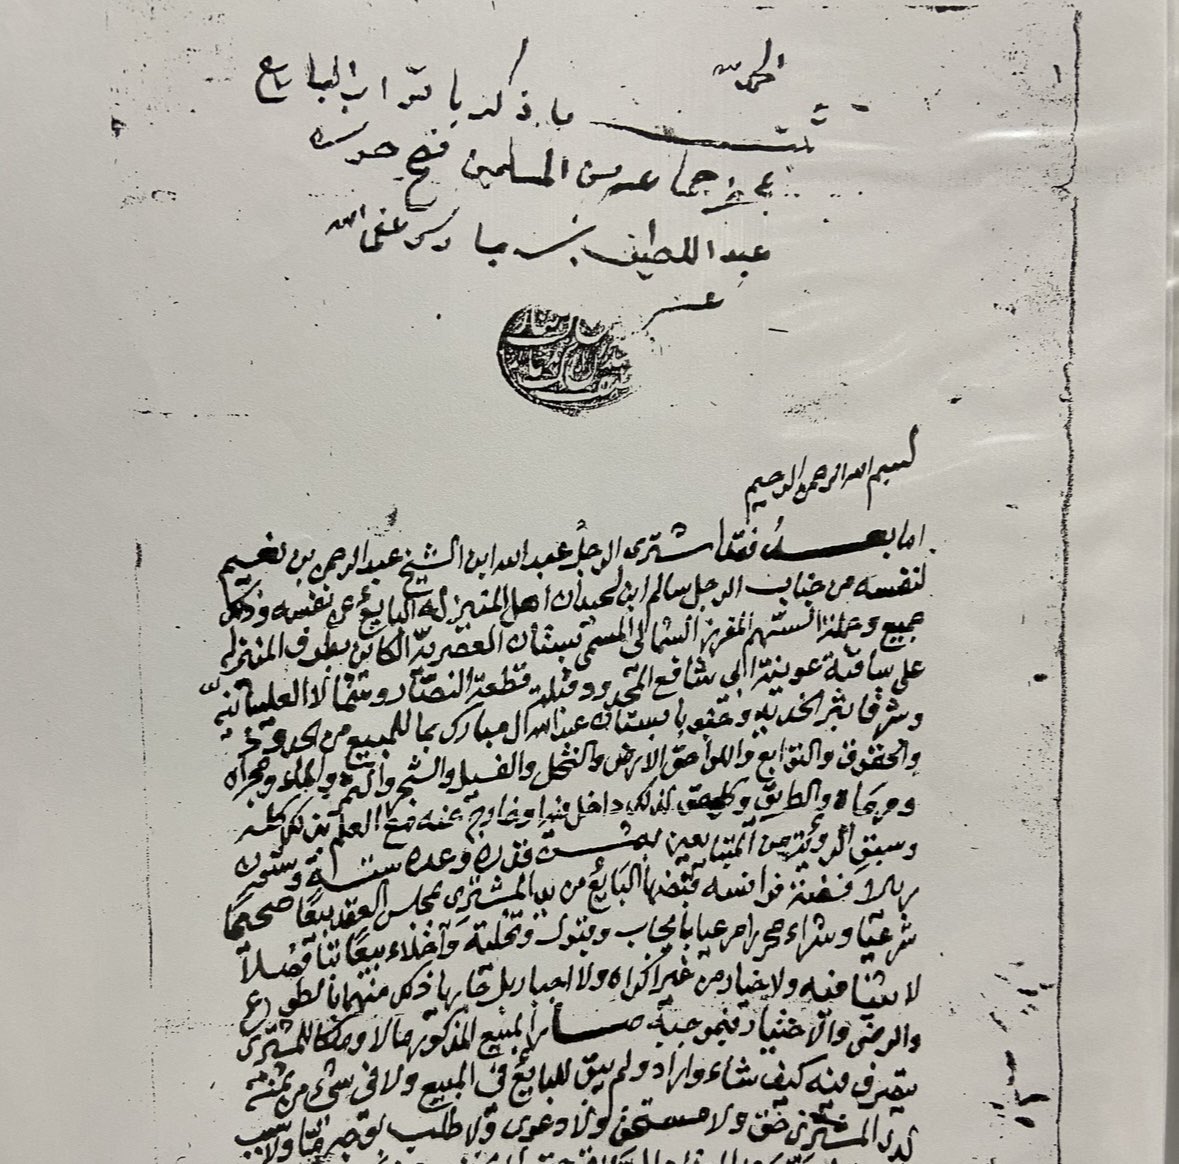 الحمد لله
ثبت ما ذكر باقرار البايع
عند جماعة من المسلمين فصح حرره
عبد اللطيف بن مبارك عفى الله
عنه
بسم الله الرحمن الرحيم
اما بعد فقد اشترى الرجل عبد الله ابن الشيخ عبد الرحمن بن نعيم
لنفسه من جناب الرجل سالم ابن لحيدان اهل المنيزله البايع عن نفسه وذلك
جميع وجملة السهم المفرز الشمالي المسمى بستان العصرية الكاين بطرف المنيزله
على ساقية عوينة ابى شافع المحدود قبلة قطعة النصار وشمالا
وشرقا بئر الخدية وجنوبا بستان عبد الله ال مبارك بما للمبيع من الحدود
والحقوق والتوابع واللواحق الارض والنخل والفسيل والشجر والثمر والماء ومجراه
ومرماه والطريق وكل حق لذلك داخل فيه او خارج عنه مع العلم بذلك كله
وسبق الرؤية من المتبايعين بثمن قدره وعده ستة وستون
ريالا فضة فرانسه قبضها البايع من يد المشترى بمجلس العقد بيعا صحيحا
شرعيا وشراء محررا مرعيا بايجاب وقبول وتخلية واخلاء بيعا بتا فصلا
لا ثنيا فيه ولا خيار من غير اكراه ولا اجبار بل صار ذلك منهما بالطوع
والرضى والاختيار فبموجبه صار المبيع المذكور مالا وملكا للمشترى
يتصرف فيه كيف شاء واراد ولم يبق للبايع فى المبيع ولا فى شىء من ثمنه
لدى المشترى حق ولا مستحق ولا دعوى ولا طلب بوجه ما ولا سبب